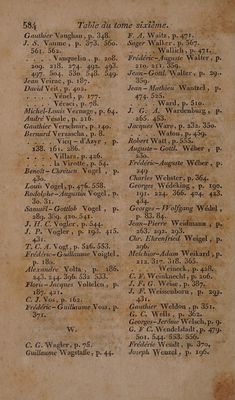 584 Table du tome sixième.
Gauthier Vaughan, p. 348.
J. S. Vaume, p. 373. 360.
561. 562.
Vauquelin, p. 208.
209. 218. 274. 492. 493.
497. 504. 530. 548. 549.
Jean Veirac, p. 187.
David Veit, p. 402.
Vénel, p. 177.
Véraci, p. 78.
Michel-Louis Vernage, p. 64.
André Vésale, p. 218.
Gauthier Verschuir, p. 140.
Bernard Verzascha, p. 8.
Vicq-d'Azyr, p.
138. 161. 286.
Villars, p. 426.
la Virotte, p. 54.
Benoît-Chrétien Vogel, p.
430.
Louis Vogel, p. 476. 558.
Rodolphe-Augustin Vogel, p.
30. 31.
Samuel-Gottlob Vogel, p.
289. 309. 420. 541.
J. H. C. Vogler, p. 544.
J. P. Vogler, p. 192. 415.
431.
T. C. A. Vogt, p. 526. 553.
Frédéric-Guillaume Voigtel,
p. 185.
Alexandre Volta, p. 186.
243. 244. 396. 532. 333.
Floris-Jacques Voltelen, p.
187. 421.
C. J. Vos, p. 162.
Frédéric-Guillaume Voss, p.
371.
W.
C. G. Wagler, p. 75.
Guillaume Wagstaffe, p. 44.
F. A. Waitz, p. 471.
Sager Walker, p. 567.
Wallich, p. 471.
Frédéric-Auguste Walter, p.
210. 211. 359.
Jean-Gottl. Walter, p. 29.
359.
Jean-Mathieu Wantzel, p.
474. 525.
Ward, p. 510.
J. G. A. Wardenburg, p.
265. 463.
Jacques Ware, p. 232. 350.
Watson, p. 439.
Robert Watt, p. 535.
Auguste-Gottl. Wéber, p.
230.
Frédéric-Auguste Wéber, p.
249.
Charles Webster, p. 364.
Georges Wédeking, p. 190.
191. 224. 366. 424. 423.
484.
Georges-Wolfgang Wédel,
p. 83. 84.
Jean-Pierre Weidmann, p.
263. 292. 293.
Chr. Ehrenfried Weigel, p.
296.
Melchior-Adam Weikard, p.
212. 317. 318. 365.
Weineck, p. 428.
C. F. Weinknecht, p. 206.
J. F. G. Weise, p. 387.
J. F. Weissenborn, p. 292.
431.
Gauthier Weldon, p. 351.
G. C. Wells, p. 362.
Georges-Jérôme Welsch, p. 9.
G. F. C. Wendelstadt, p. 479.
501. 544. 553. 556.
Frédéric Wendt, p. 370.
Joseph Wenzel, p. 196.